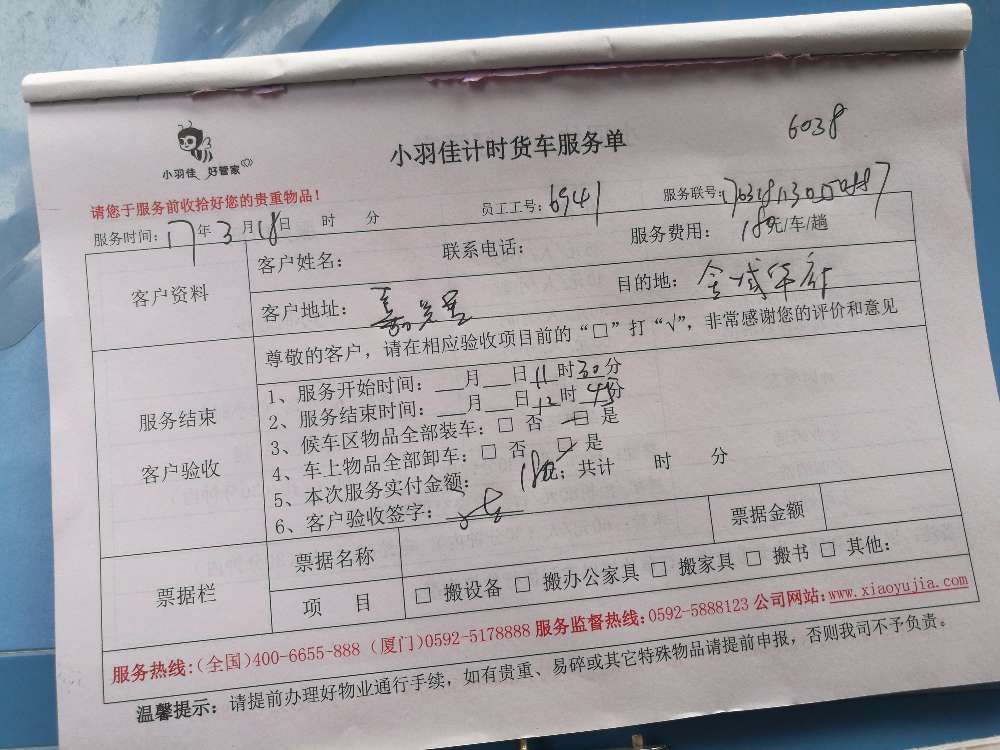 6038
小羽佳 好管家
小羽佳计时货车服务单
请您于服务前收拾好您的贵重物品！
服务时间：17年3月18日 时 分 员工工号：6941 服务联号：
客户资料
客户姓名： 联系电话： 服务费用：180元/车/趟
客户地址： 目的地：
服务结束
客户验收
尊敬的客户，请在相应验收项目前的“□”打“√”，非常感谢您的评价和意见
1、服务开始时间：___月___日11时30分
2、服务结束时间：___月___日12时45分
3、候车区物品全部装车：□ 否 □ 是
4、车上物品全部卸车：□ 否 □ 是
5、本次服务实付金额：180元；共计 时 分
6、客户验收签字：
票据栏
票据名称 票据金额
项 目 □ 搬设备 □ 搬办公家具 □ 搬家具 □ 搬书 □ 其他：
服务热线：（全国）400-6655-888（厦门）0592-5178888 服务监督热线：0592-5888123 公司网站：www.xiaoyujia.com
温馨提示：请提前办理好物业通行手续，如有贵重、易碎或其它特殊物品请提前申报，否则我司不予负责。